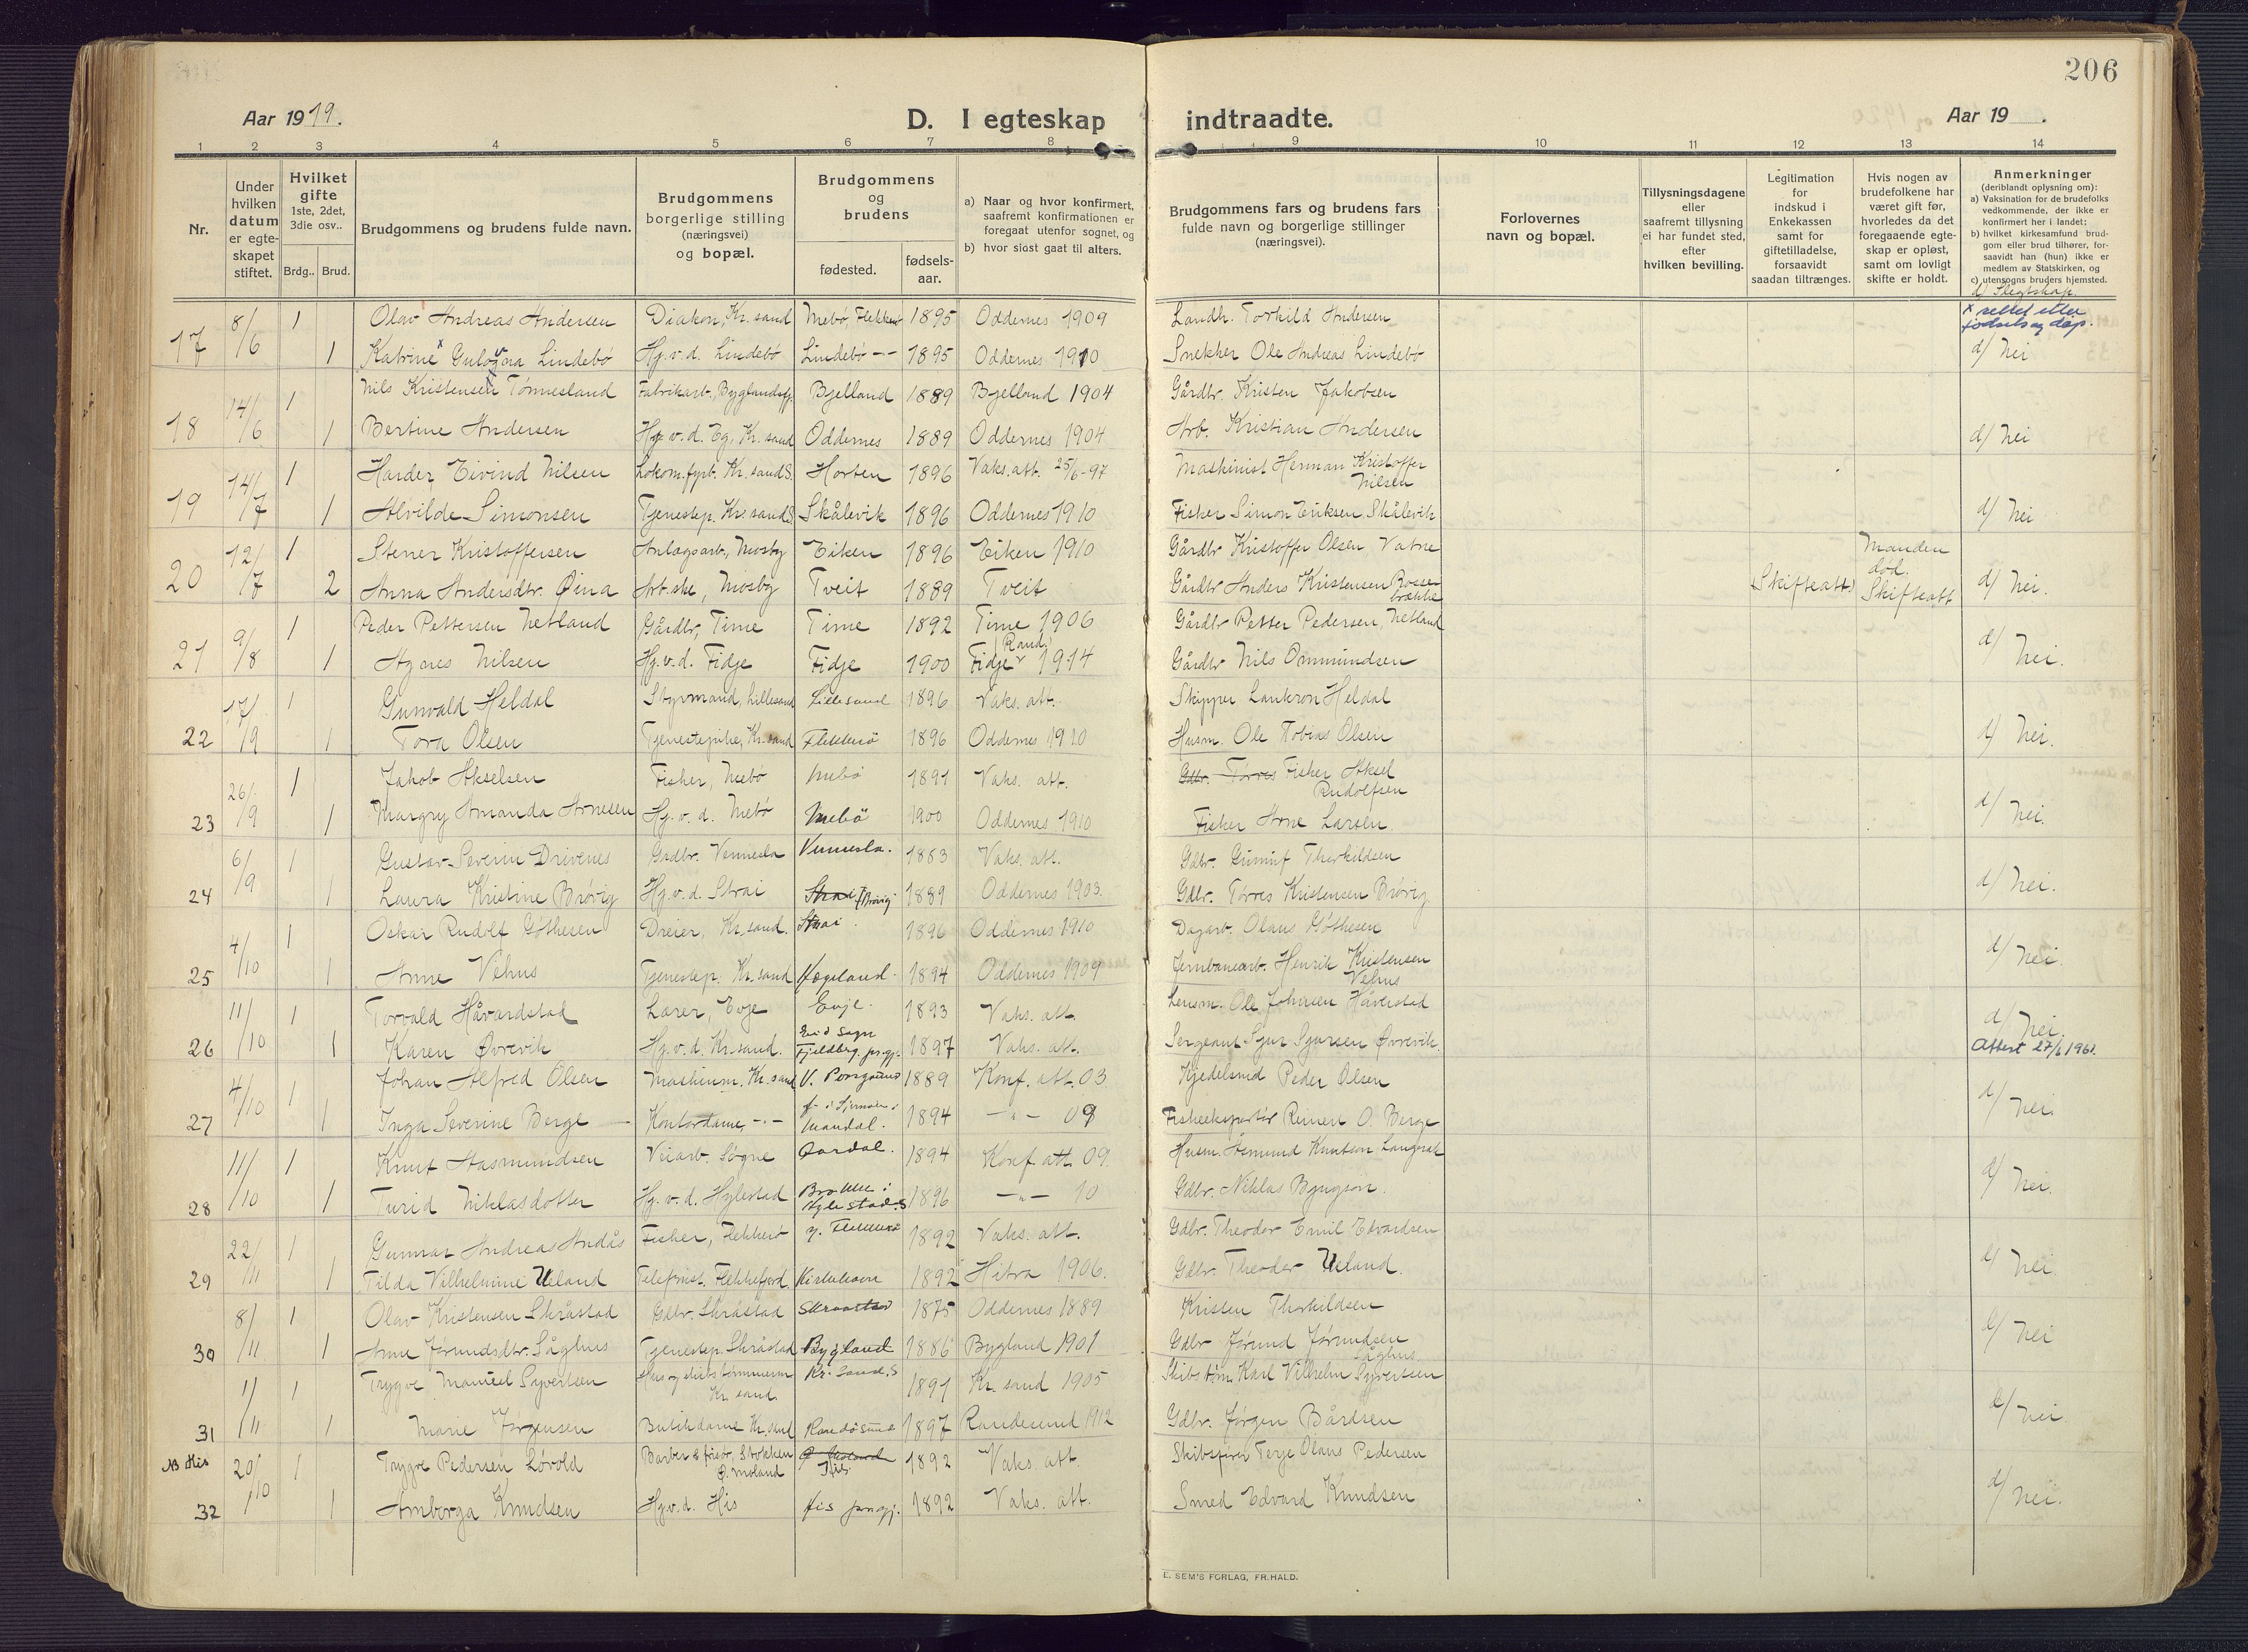 206
Aar 1919.
D. I egteskap indtraadte.
Aar 19 .
1 2 3 4 5 6 7 8 9 10 11 12 13 14
Nr.
Under hvilken datum er egteskapet stiftet.
Hvilket gifte 1ste, 2det, 3die osv..
Brdg.. Brud.
Brudgommens og brudens fulde navn.
Brudgommens borgerlige stilling (næringsvei) og bopæl.
Brudgommens og brudens
fødested.
fødsels-aar.
a) Naar og hvor konfirmert, saafremt konfirmationen er foregaat utenfor sognet, og
b) hvor sidst gaat til alters.
Brudgommens fars og brudens fars fulde navn og borgerlige stillinger (næringsvei).
Forlovernes navn og bopæl.
Tillysningsdagene eller saafremt tillysning ei har fundet sted, efter hvilken bevilling.
Legitimation for indskud i Enkekassen samt for giftetilladelse, forsaavidt saadan tiltrænges.
Hvis nogen av brudefolkene har været gift før, hvorledes da det foregaaende egteskap er opløst, samt om lovligt skifte er holdt.
Anmerkninger (deriblandt oplysning om):
a) Vaksination for de brudefolks vedkommende, der ikke er konfirmert her i landet;
b) hvilket kirkesamfund brudgom eller brud tilhører, forsaavidt han (hun) ikke er medlem av Statskirken, og
c) utensogns bruders hjemsted.
d) Slegtskap.
8/6 1 Olav Andreas Andersen Diakon, Kr.sand Mebø, Flekkerø 1895 Oddernes 1909 Landh. Torkild Andersen x rettet etter fødsels og dåp.
17 1 Katrine x Lindebø Hg.v.d. Lindebø Lindebø -"- 1895 Oddernes 1910 Snekker Ole Andreas Lindebø d/ Nei
14/6 1 Nils Kristensen Tønnesland Fabrikarb., Byglandsfj. Bjelland 1889 Bjelland 1904 Gårdbr. Kristen Jakobsen
18 1 Bertine Andersen Hg.v.d. Eg, Kr.sand Oddernes 1889 Oddernes 1904 Arb. Kristian Andersen d/ Nei
14/7 1 Harder Eivind Nilsen Lokom.fyrb. Kr.sand S. Horten 1896 Vaks.att. 25/6-97 Maskinist Herman Kristoffer Nilsen
19 1 Alvilde Simonsen Tjenestep. Kr.sand S. Skålevik 1896 Oddernes 1910 Fisker Simon Eriksen, Skålevik d/ Nei
12/7 1 Stener Kristoffersen Anlægsarb., Mosby Eiken 1896 Eiken 1910 Gårdbr Kristoffer Olsen, Vatne Manden død.
20 2 Anna Andersdtr. Øina Arb.ske, Mosby Tveit 1889 Tveit Gårdbr Anders Kristensen (Skifteatt.) Skifteatt d/ Nei.
9/8 1 Peder Pettersen Netland Gårdbr, Time Time 1892 Time 1906 Gårdbr Petter Pedersen, Netland
21 1 Agnes Nilsen Hg.v.d. Fidje Fidje 1900 Fidje (Rand.) 1914 Gårdbr Nils Ommundsen d/ Nei.
17/9 1 Gunvald Heldal Styrmand, Lillesand Lillesand 1896 Vaks. att. Skipper Lankron Heldal
22 1 Tora Olsen Tjenestepike, Kr.sand Flekkerø 1896 Oddernes 1910 Husm. Ole Tobias Olsen d/ Nei.
26/9 1 Jakob Akselsen Fisker, Mebø Mebø 1891 Vaks. att. Gdbr. Torres Fisker Aksel Rudolfsen
23 1 Margry Amanda Arnesen Hg.v.d. Mebø Mebö 1900 Oddernes 1910 Fisker Arne Larsen. d/ Nei.
6/9 1 Gustav Severin Drivenes Gardbr. Vennesla Vennesla. 1883 Vaks. att. Gdbr. Gunuf Thorkildsen
24 1 Laura Kristine Brøvig Hg.v.d. Strai Strai Brøvig 1889 Oddernes 1903. Gdbr. Torres Kristensen Brøvig. d/ Nei.
4/10 1 Oskar Rudolf Gøthesen Dreier, Kr.sand. Strai. 1896 Oddernes 1910 Dagarb. Olaus Gøthesen
25 1 Anne Vehus Tjenestep. Kr.sand Hægeland. 1894 Oddernes 1909 Jernbanearb. Henrik Kristensen Vehus d/ Nei.
11/10 1 Torvald Håvardstad Lærer, Evje Evje. 1893 Vaks. att. Lensm. Ole Johnsen Håverstad
26 1 Karen Øvrevik Hg.v.d. Kr.sand. Eid sogn Fjeldberg pr.gj. 1897 Vaks. att. Sergeant Sjur Sjursen Øvrevik. d/ Nei. Attest 27/6 1961.
4/10 1 Johan Alfred Olsen Maskinm. Kr.sand V. Porsgrund 1889 Konf. att. 03 Kjedelsmed Peder Olsen
27 1 Inga Severine Berge Kontordame, -"- Mandal. 1894 -"- 09 Fiskeeksportør Reinert O. Berge d/ Nei.
11/10 1 Knut Aasmundsen Veiarb. Søgne Aardal. 1894 Konf. att. 09 Husm. Asmund Knutson Langerak
28 1 Turid Niklasdotter Hg.v.d. Hylestad Brokke i Hylestad. S 1896 -"- 10 Gdbr. Niklas Bjugson. d/ Nei.
22/11 1 Gunnar Andreas Andås Fisker, Flekkerø y. Flekkerø 1892 Vaks. att. Gdbr. Theodor Emil Edvardsen
29 1 Tilda Vilhelmine Ueland Telefonist. Flekkefjord. Kirkehavn 1892 Hitra 1906. Gdbr. Theodor Ueland. d/ Nei.
8/11 1 Olav Kristensen Skråstad Gdbr. Skråstad Skraastad 1875 Oddernes 1889 Kristen Thorkildsen
30 1 Anne Jørundsdtr. Såghus Tjenestep. Skråstad Bygland 1886 Bygland 1901 Gdbr Jørund Jørundsen Såghus. d/ Nei
1/11 1 Trygve Manuel Syvertsen Hus og skibstømmerm Kr.sand Kr.sand.S 1891 Kr.sand 1905 Skibstøm. Karl Vilhelm Syvertsen
31 1 Marie Jørgensen Butikdame Kr.sand Randøsund 1897 Randesund 1912 Gdbr. Jørgen Bårdsen d/ Nei
NB His 20/10 1 Trygve Pedersen Løvold Barber & frisør, Stokken Ø. Moland 1892 Vaks. att. Skibsfører Terje Olaus Pedersen
32 1 Amborga Knudsen Hg.v.d. His His prgj. 1892 Vaks. att. Smed Edvard Knudsen d/ Nei.
E. SEM'S FORLAG, FR.HALD.